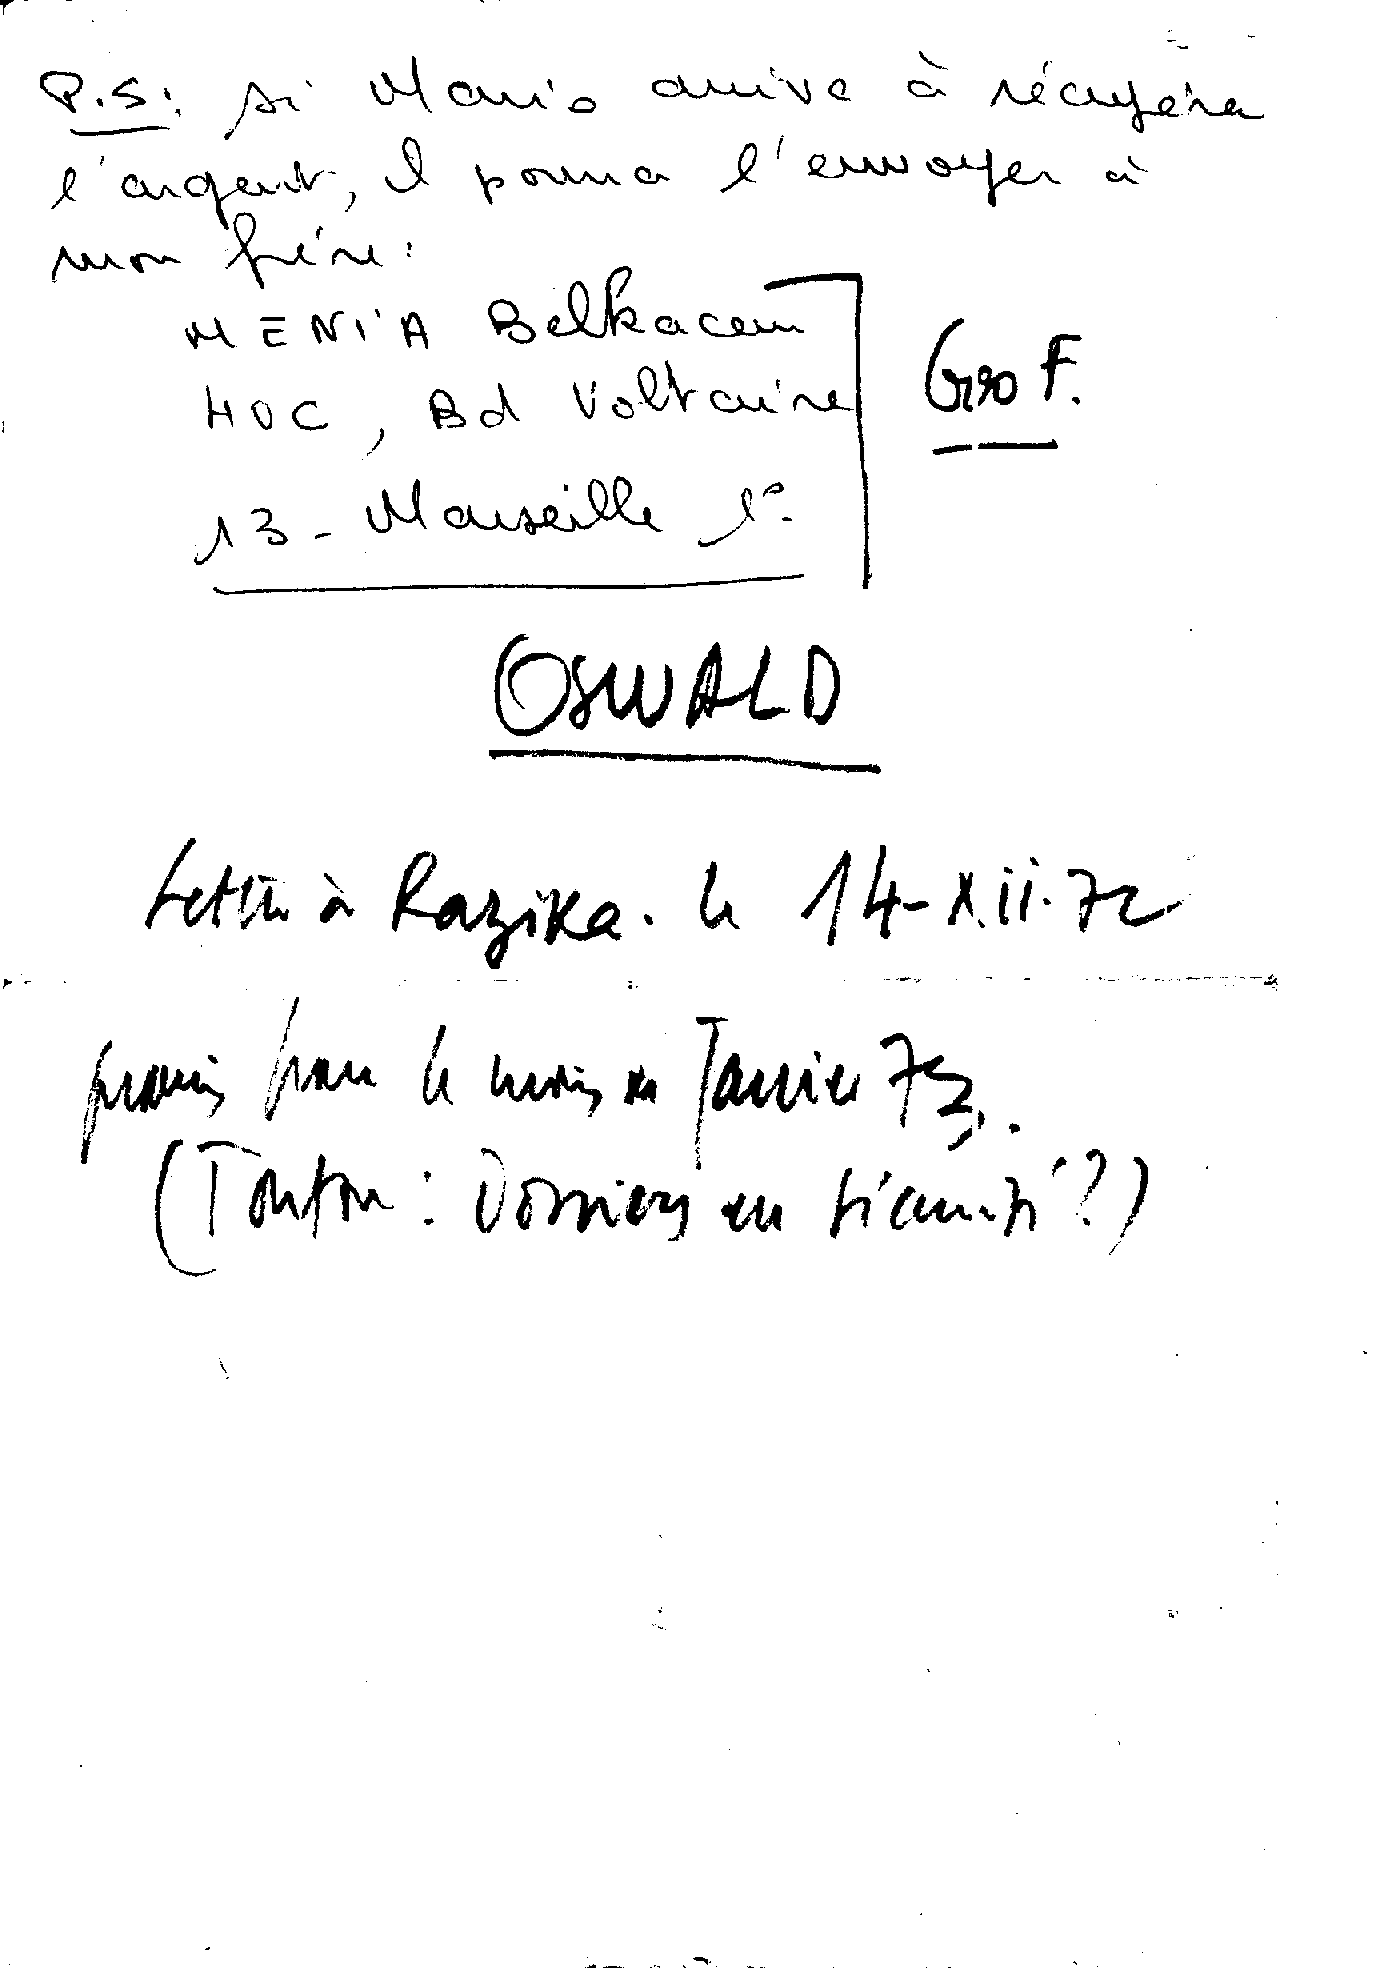 P.S: si Mario arrive à récupérer
l'argent, il pourra l'envoyer à
mon frère:
MENIA Belkacem
40C, Bd Voltaire
13 - Marseille 1°
OSWALD
Lettre à Razika. le 14-XII-72
promis pour le mois de Janvier 73.
(Tonton: Dossiers en sécurité?)